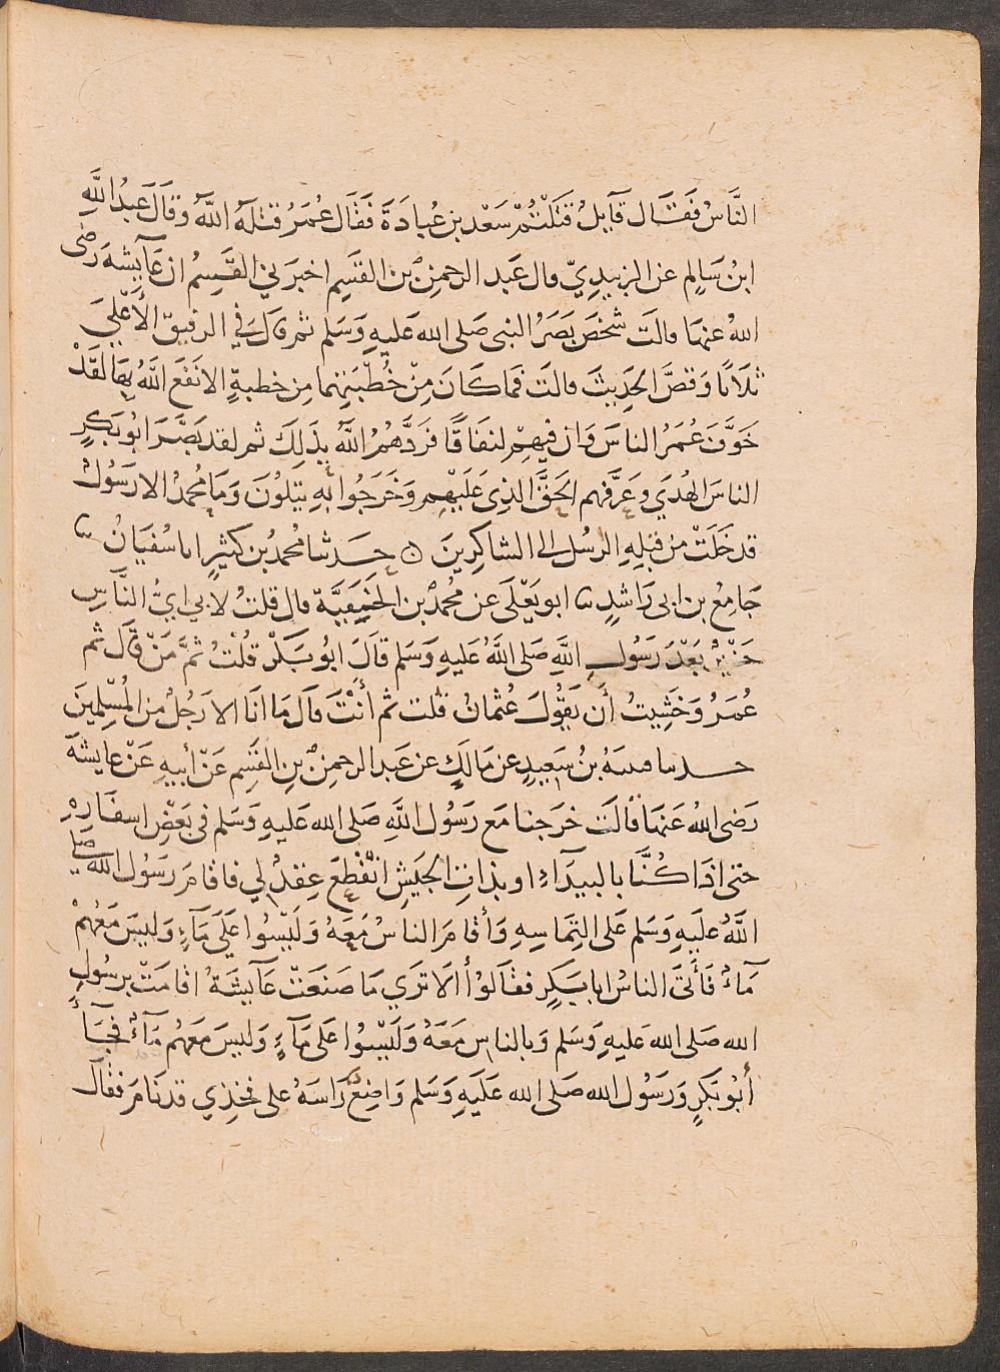 النَّاسُ فَقَالَ قَآيِلٌ قَتَلْتُمْ سَعْد بن عُبادَةَ فَقَال عُمَرُ قتلَهُ اللَّهُ وَقَالَ عَبدُ اللَّهِ
ابنُ سَالِم عن الزبيدِيّ قال عَبد الرحمنِ بن القسَمِ اخبرَنِي القَسِمُ ان عَآيِشةَ رَضى
اللهُ عنهَا قالَت شخَصَ بَصَرُ النبى صَلى الله عَليهِ وَسَلم ثم قَالَ فِي الرفيق الأَعْلَي
ثَلاَثًا وَقصَّ الحَدِيثَ قالتَ فَمَا كَانَ مِنْ خُطْبَتِهِمَا مِن خطبةٍ الا نَفَعَ اللَّهُ بِهَا لَقَدْ
خَوَّفَ عُمَرُ الناسَ وَان فيهِمْ لنفَاقًا فَرَدَّهُمُ اللَّهُ بِذَلِكَ ثم لقد بَصَّرَ ابُو بَكرٍ
الناسَ الهُدَي وعَرَّفهم الحَقَّ الذِى عَلَيْهِم وَخَرَجُوا بِهِ يَتلوُنَ وَمَا مُحمدٌ الا رَسُولٌ
قد خَلَتْ من قَبلِهِ الرسُل الى الشاكِرِينَ ۞ حَدثنا مُحمدُ بن كَثيرٍ انا سُفيَانُ نا
جَامِعُ بن ابى رَاشدٍ نا ابو يَعْلَى عن مُحمدُ بن الحَنَفِيَّة قال قلتُ لأبي ايُّ النَّاسِ
خَيْرٌ بَعْدَ رَسُولِ اللَّهِ صَلى اللَّهُ عَليهِ وَسَلم قَالَ ابُو بَكرْ قُلْتُ ثمَّ مَنْ قَالَ ثم
عُمَرُ وَخَشِيتُ أَن يَقُولَ عُثمَانُ قلت ثم أَنْتَ قَالَ مَا انَا الا رَجُلٌ من المُسْلِمينَ
حدثنا قتيبَةُ بنُ سَعِيدٍ عن مَالكٍ عن عَبد الرحمنِ بنِ القسِمِ عَنْ أَبيهِ عَنْ عايشَةَ
رَضى اللهُ عَنهَا قَالَت خرَجنا مَع رَسُول اللَّهِ صَلى الله عَليهِ وَسَلم فى بَعْضِ اسفَارِهِ
حتى اذَا كُنَّا بالبيدَآءِ او بذاتِ الجَيشِ انْقطعَ عِقدٌ لي فاقامَ رَسُول الله صَلى
اللَّهُ علَيهِ وَسَلم عَلى التِمَاسِهِ وَأَقامَ الناسُ مَعَهُ وَلَيْسُوا عَلَي مَآءٍ وَليسَ مَعَهُمْ
مَآءٌ فَأَتَى الناسُ ابا بَكرٍ فقَالوُا أَلاَ تَري مَا صَنَعَتْ عَآيِشَةُ اقامَتْ برسُولِ
الله صَلى الله عَليهِ وَسَلم وَبالناس مَعَهُ وَلَيْسُوا عَلى مَآءٍ وَليسَ مَعَهُم مَآءٌ فجَآءَ
أَبُو بَكرٍ وَرَسُول الله صَلى الله عَلَيهِ وَسَلم وَاضِعٌ رَاسَهُ على فخِذِي قد نَامَ فقَالَ